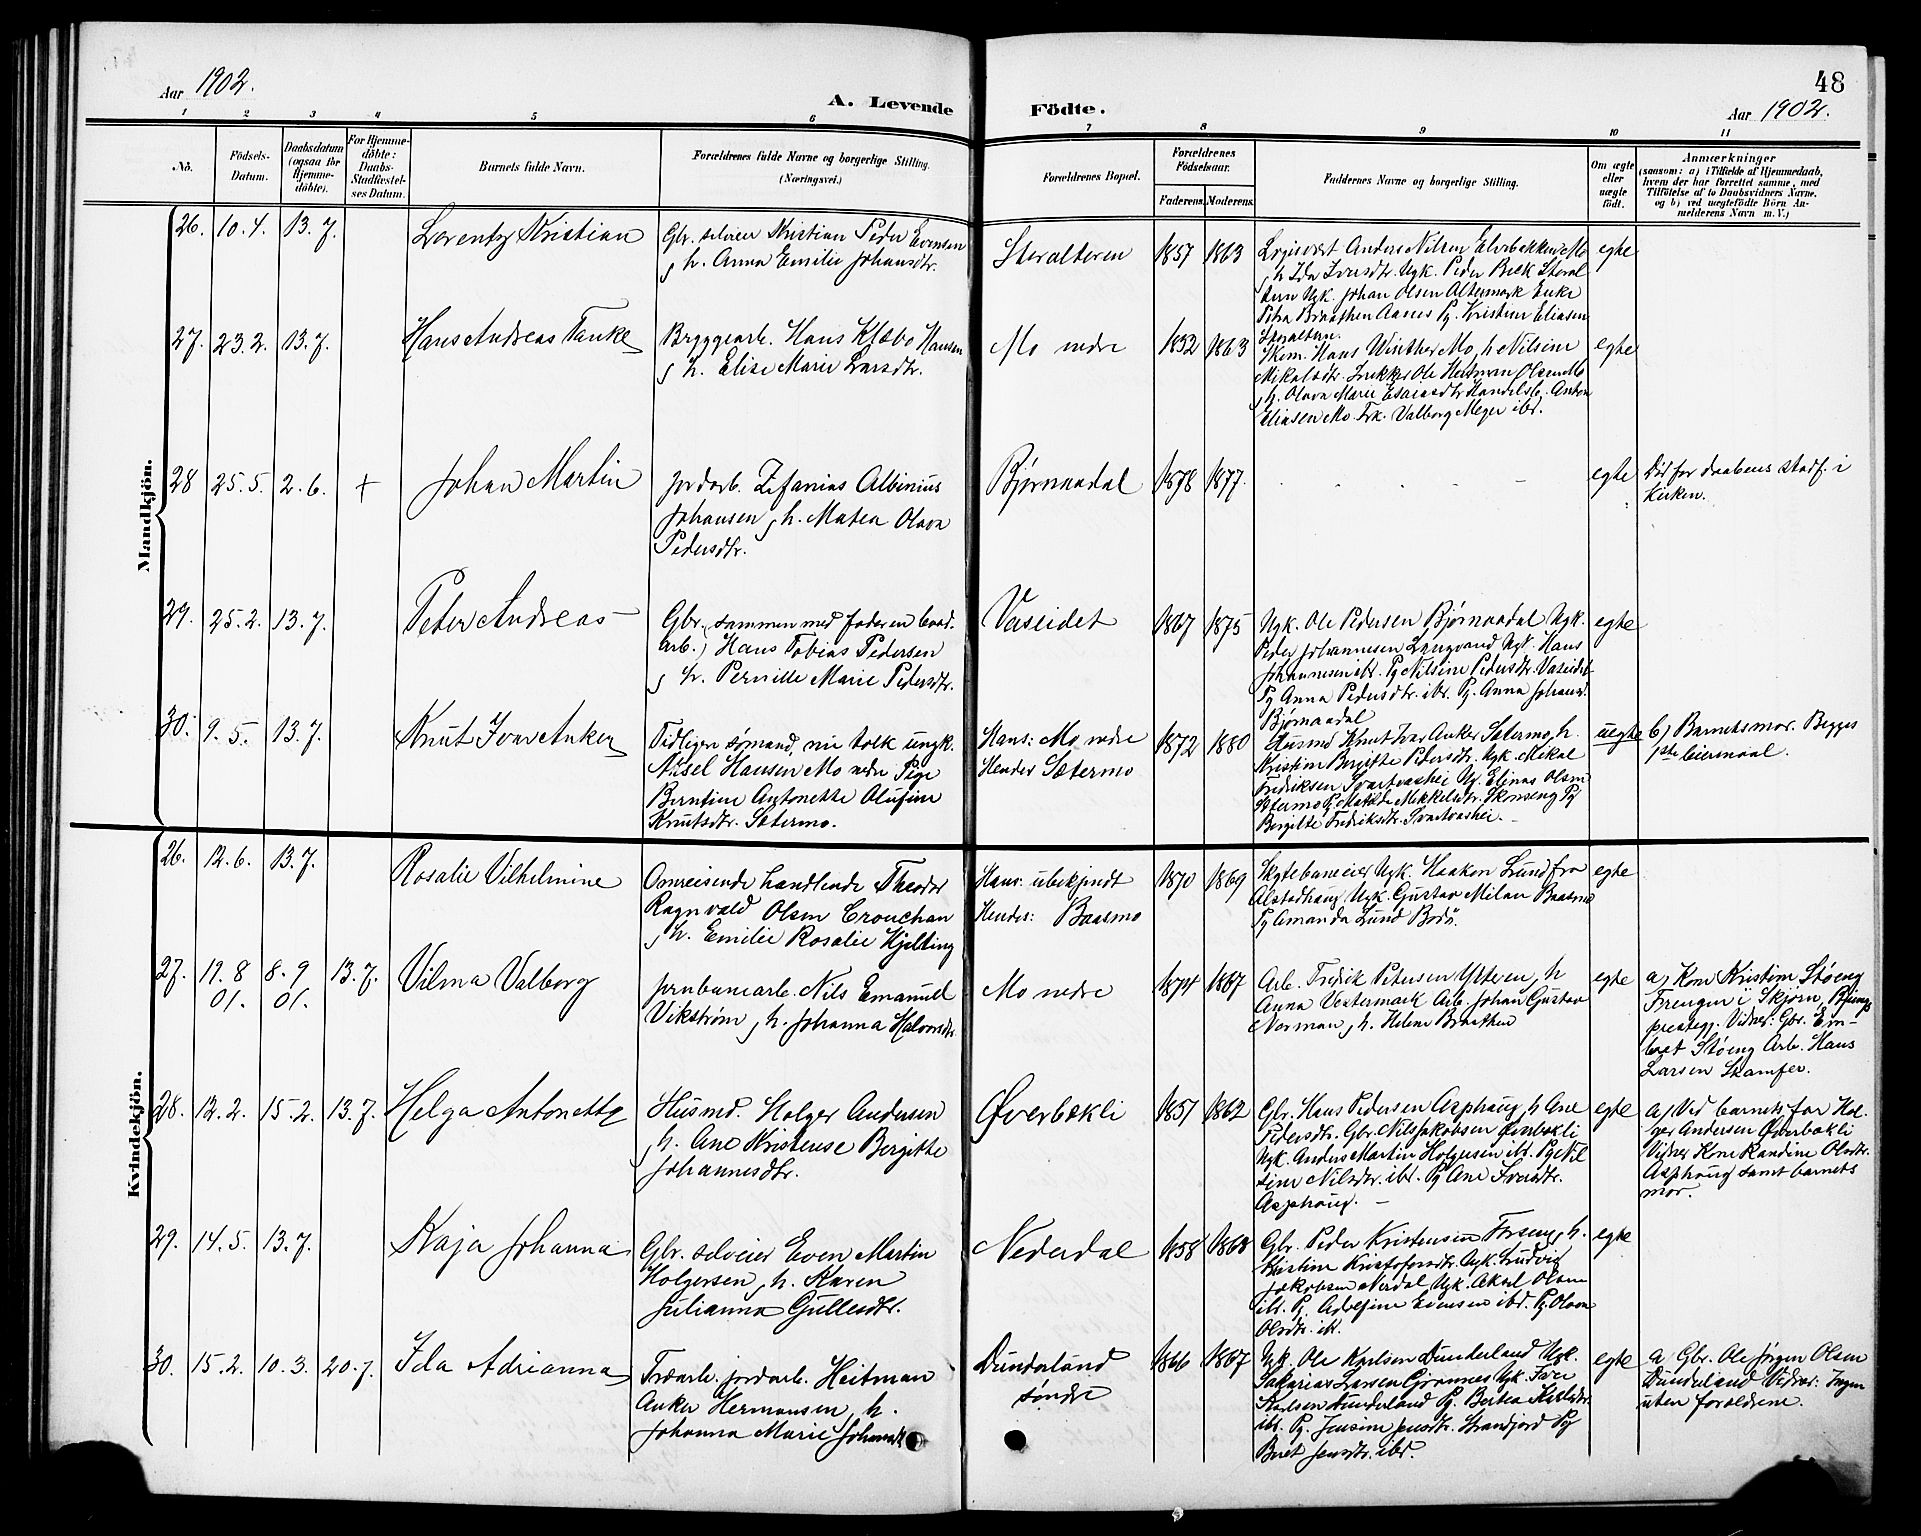 48
Aar 1902.
A. Levende Födte.
Aar 1902.
1 2 3 4 5 6 7 8 9 10 11
No.
Födsels-Datum.
Daabsdatum (ogsaa for Hjemme-döbte).
For Hjemme-döbte: Daabs-Stadfæstel-ses Datum.
Barnets fulde Navn.
Forældrenes fulde Navne og borgerlige Stilling. (Næringsvei.)
Forældrenes Bopæl.
Forældrenes Födselsaar.
Faderens. Moderens.
Faddernes Navne og borgerlige Stilling.
Om ægte eller uægte födt.
Anmærkninger
(saasom: a) i Tilfælde af Hjemmedaab,
hvem der har forrettet samme, med
Tilföielse af to Daabsvidners Navne.
og b) ved uægtefödte Börn An-
melderens Navn m. V.)
Mandkjön.
26. 10.4. 13.7. Lorentz Kristian
Gbr. selveier Kristian Peder Evensen
, h. Anna Emilie Johansdtr.
Storalteren 1857 1863
Logisvært Anders Nilsen Elvebakken Mo
, h. Ida Iversdtr. Ugk. Peder Bæk Storal
teren Ugk. Johan Olsen Altermark Enke
Petra Braathen Aanes Pg. Kristine Eliasen
Storalteren.
egte
27. 23.2. 13.7. Hans Andreas Tanke
Bryggearb. Hans Klæbo Hansen
, h. Elise Marie Larsdtr.
Mo nedre 1832 1863
Skom. Hans Winther Mo, h. Nilsine
Mikalsdtr. Snekker Ole Herman Olsen Mo
, h. Olava Marie Esaiasdtr. Handelsb. Anton
Eliasen Mo Frk. Valborg Meyer ibd.
egte
28 25.5. 2.6. + Johan Martin
Jordarb. Zefanias Albinius
Johansen, h. Matea Olava
Pedersdtr.
Bjørnaadal 1878 1877.
egte
Død før daabens stadf. i
Kirken.
29. 25.2. 13.7. Peter Andreas
Gbr. (sammen med faderen bord.
arb.) Hans Tobias Pedersen
, h. Pernille Marie Pedersdtr.
Vaseidet 1867 1875
Ugk. Ole Pedersen Bjørnaadal Ugk.
Peder Johannesen Langvand Ugk. Hans
Johannesen ibd. Pg Nilsine Pedersdtr. Vaseidet
Pg Anna Pedersdtr. ibd. Pg. Anna Johansd.
Bjørnaadal
egte
30. 9.5. 13.7. Knut Ivar Anker
Tidligere sømand, nu tolk ungk.
Aksel Hansen Mo nedre Pige
Berntine Antonette Olufine
Knutsdtr. Sætermo.
Hans: Mo nedre
Hendes Sætermo
1872 1880
Husmd Knut Ivar Anker Sætermo, h.
Kristine Birgitte Pedersdtr. Ugk. Mikal
Fredriksen Svartvashei Ug. Elinas Olsen
Sætermo P. Matilde Mikkelsdtr. Skonseng Pg
Birgitte Fredriksdtr. Svartvashei.
uegte
b) Barnets mor. Begges
1ste leiermaal.
Kvindekjön.
26. 12.6. 13.7. Rosalie Vilhelmine
Omreisende handlende Theodor
Ragnvald Olsen Crouchan
, h. Emilie Rosalie Hjelting
Hans: ubekjendt
Hendes: Baasmo
1870 1869
Skytebaneeier Ugk. Haakon Lund fra
Alstadhaug Ugk. Gustav Milan Baasmo
Pg Amanda Lund Bodø.
egte
27. 19.8 01. 8.9 01. 13.7. Vilma Valborg
Jernbanearb. Nils Emanuel
Vikstrøm, h. Johanna Halvorsdtr.
Mo nedre 1874 1867
Arb. Fredrik Petersen Ytteren, h
Anna Vestermark Arb. Johan Gustav
Norman, h. Helene Braathen
egte
a) Kone Kristine Støeng
Frengen i Skjørn, Bjugn
prestegj. Vidner: Gbr. Em-
bret Støeng Arb. Hans
Larsen Skamfer.
28. 12.2. 15.2. 13.7. Helga Antonette
Husmd. Holger Andersen
, h. Ane Kristense Bergitte
Johannesdtr.
Øverbækli 1857 1862
Gbr. Hans Pedersen Asphaug, h Ane
Pedersdtr. Gbr. Nils Jakobsen Øverbækli
Ugk. Anders Martin Holgersen ibd. Pg Nil
sine Nilsdtr. ibd. Pg Ane Iversdtr.
Asphaug.
egte
a) Ved barnets far Hol-
ger Andersen Øverbækli
Vidner Kone Randine Olsdtr.
Asphaug samt barnets
mor.
29. 14.5. 13.7. Kaja Johanna
Gbr. selveier Even Martin
Holgersen, h. Karen
Julianna Gullesdtr.
Nederdal 1858 1868
Gbr. Peder Kristensen Forseng, h.
Kristine Kristofersdtr. Ugk. Ludvig
Jakobsen Nerdal Ugk. Aksel Olsen
ibd. Pg. Adolfine Evensen ibd. Pg Olava
Olsdtr. ibd.
egte
30. 15.2. 10.3. 20.7. Ida Adrianna
Træarb. jordarb. Heitman
Anker Hermansen, h.
Johanna Marie Johansdtr
Dunderland
søndre
1866 1867
Ugk. Ole Karlsen Dunderland Ugk.
Sakarias Larsen Grønnes Ugk. Iver
Karlsen Dunderland Pg. Bertea Karlsdtr.
ibd. Pg. Jensine Jensdtr. Strandjord Pg
Beret Jensdtr. ibd.
egte
a) Gbr. Ole Jørgen Olsen
Dunderland Vidner: Ingen
uten forældrene.